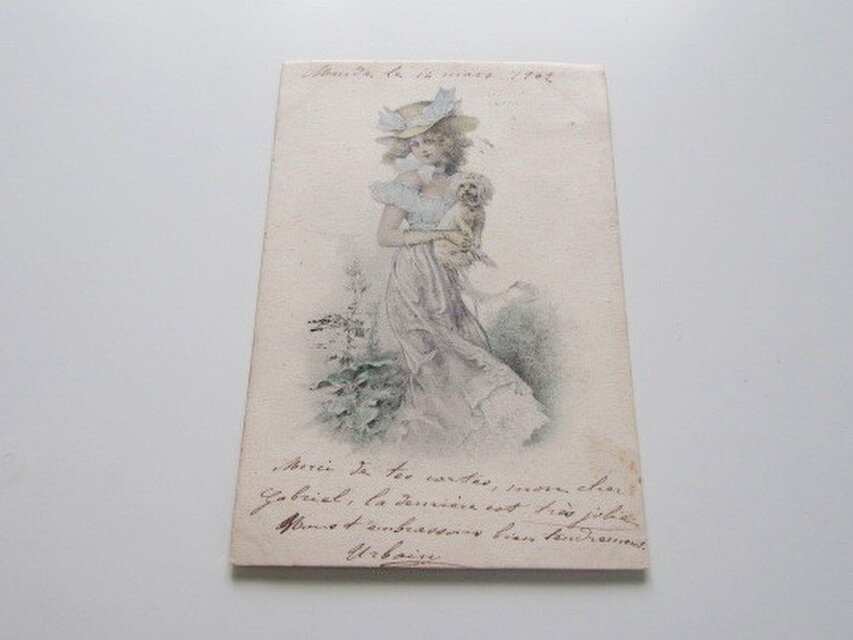 le 14 mars 1902
Merci de tes cartes, mon cher
Gabriel, la dernière est très jolie.
Nous t'embrassons bien tendrement.
Urbain